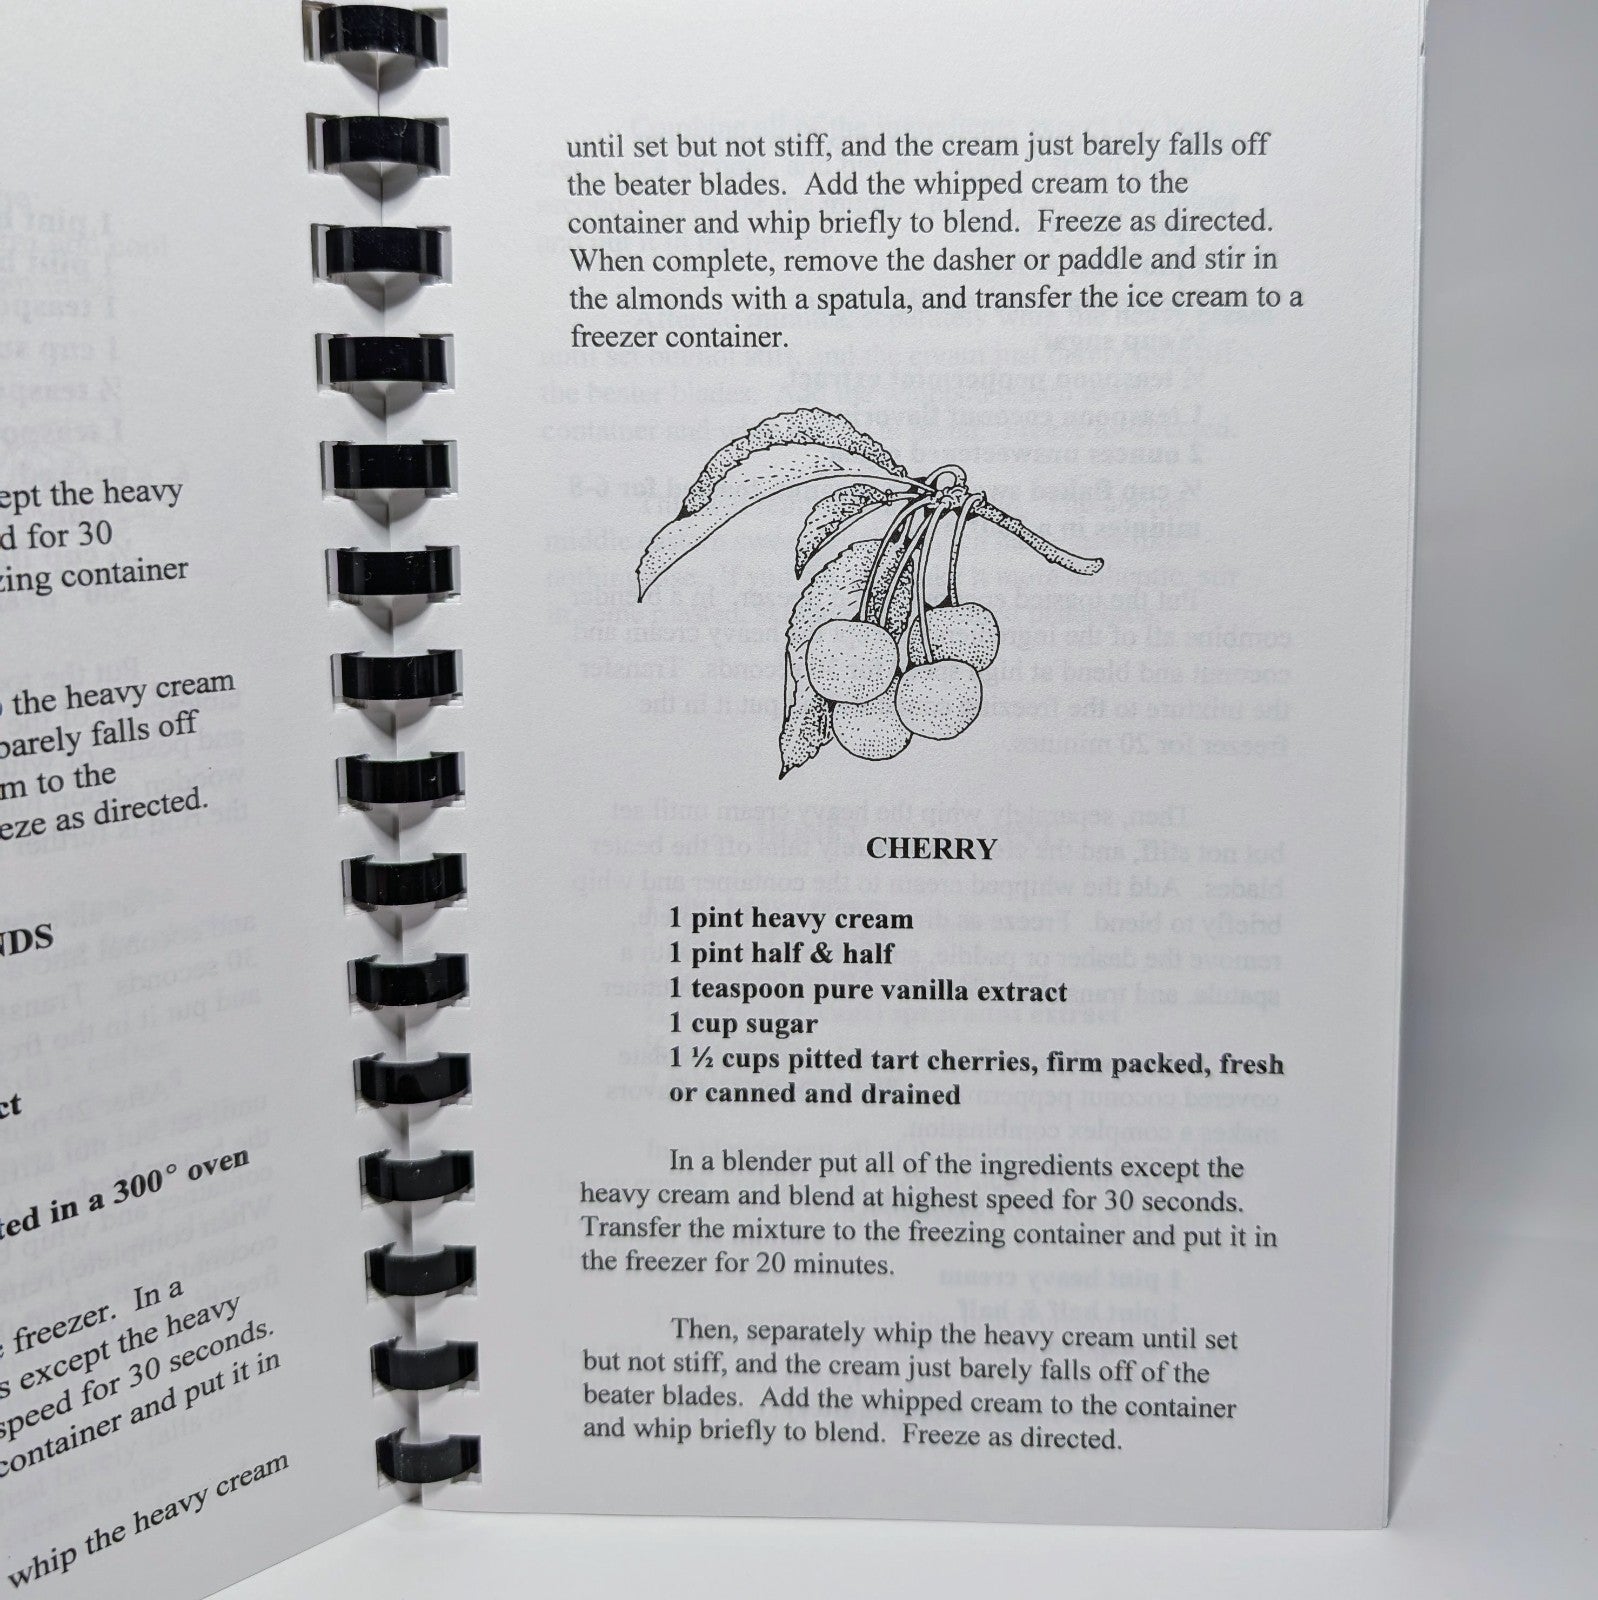 cept the heavy
d for 30
zing container
the heavy cream
barely falls off
m to the
eze as directed.
NDS
ct
ted in a 300° oven
freezer.  In a
s except the heavy
speed for 30 seconds.
container and put it in
whip the heavy cream
until set but not stiff, and the cream just barely falls off
the beater blades.  Add the whipped cream to the
container and whip briefly to blend.  Freeze as directed.
When complete, remove the dasher or paddle and stir in
the almonds with a spatula, and transfer the ice cream to a
freezer container.
CHERRY
1 pint heavy cream
1 pint half & half
1 teaspoon pure vanilla extract
1 cup sugar
1 ½ cups pitted tart cherries, firm packed, fresh
or canned and drained
In a blender put all of the ingredients except the
heavy cream and blend at highest speed for 30 seconds.
Transfer the mixture to the freezing container and put it in
the freezer for 20 minutes.
Then, separately whip the heavy cream until set
but not stiff, and the cream just barely falls off of the
beater blades.  Add the whipped cream to the container
and whip briefly to blend.  Freeze as directed.